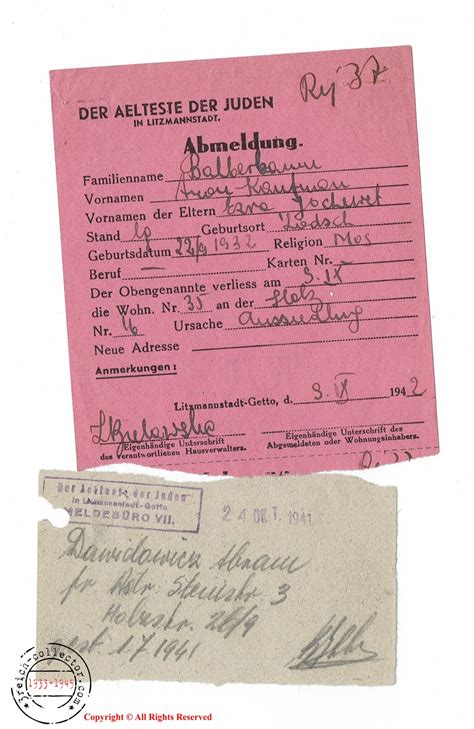 Rej 37
DER AELTESTE DER JUDEN
IN LITZMANNSTADT.
Abmeldung.
Familienname Balberbaum
Vornamen Aron Kaufman
Vornamen der Eltern Ezra Jochewet
Stand lg Geburtsort Lodsch
Geburtsdatum 22/9 1932 Religion Mos
Beruf — Karten Nr.
Der Obengenannte verliess am 9.IX
die Wohn. Nr. 35 an der Holz
Nr. 16 Ursache Aussiedlung
Neue Adresse
Anmerkungen:
Litzmannstadt-Getto, d. 9.IX 1942
Eigenhändige Unterschrift
des verantwortlichen Hausverwalters.
Eigenhändige Unterschrift des
Abgemeldeten oder Wohnungsinhabers.
Der Aelteste der Juden
in Litzmannstadt-Getto
MELDEBÜRO VII.
24 OKT. 1941
Dawidowicz Abram
fr Adr. Steinstr. 3
Holzstr. 26/9
gest. 1.7 1941
3reich-collector.com
1933-1945
Copyright © All Rights Reserved